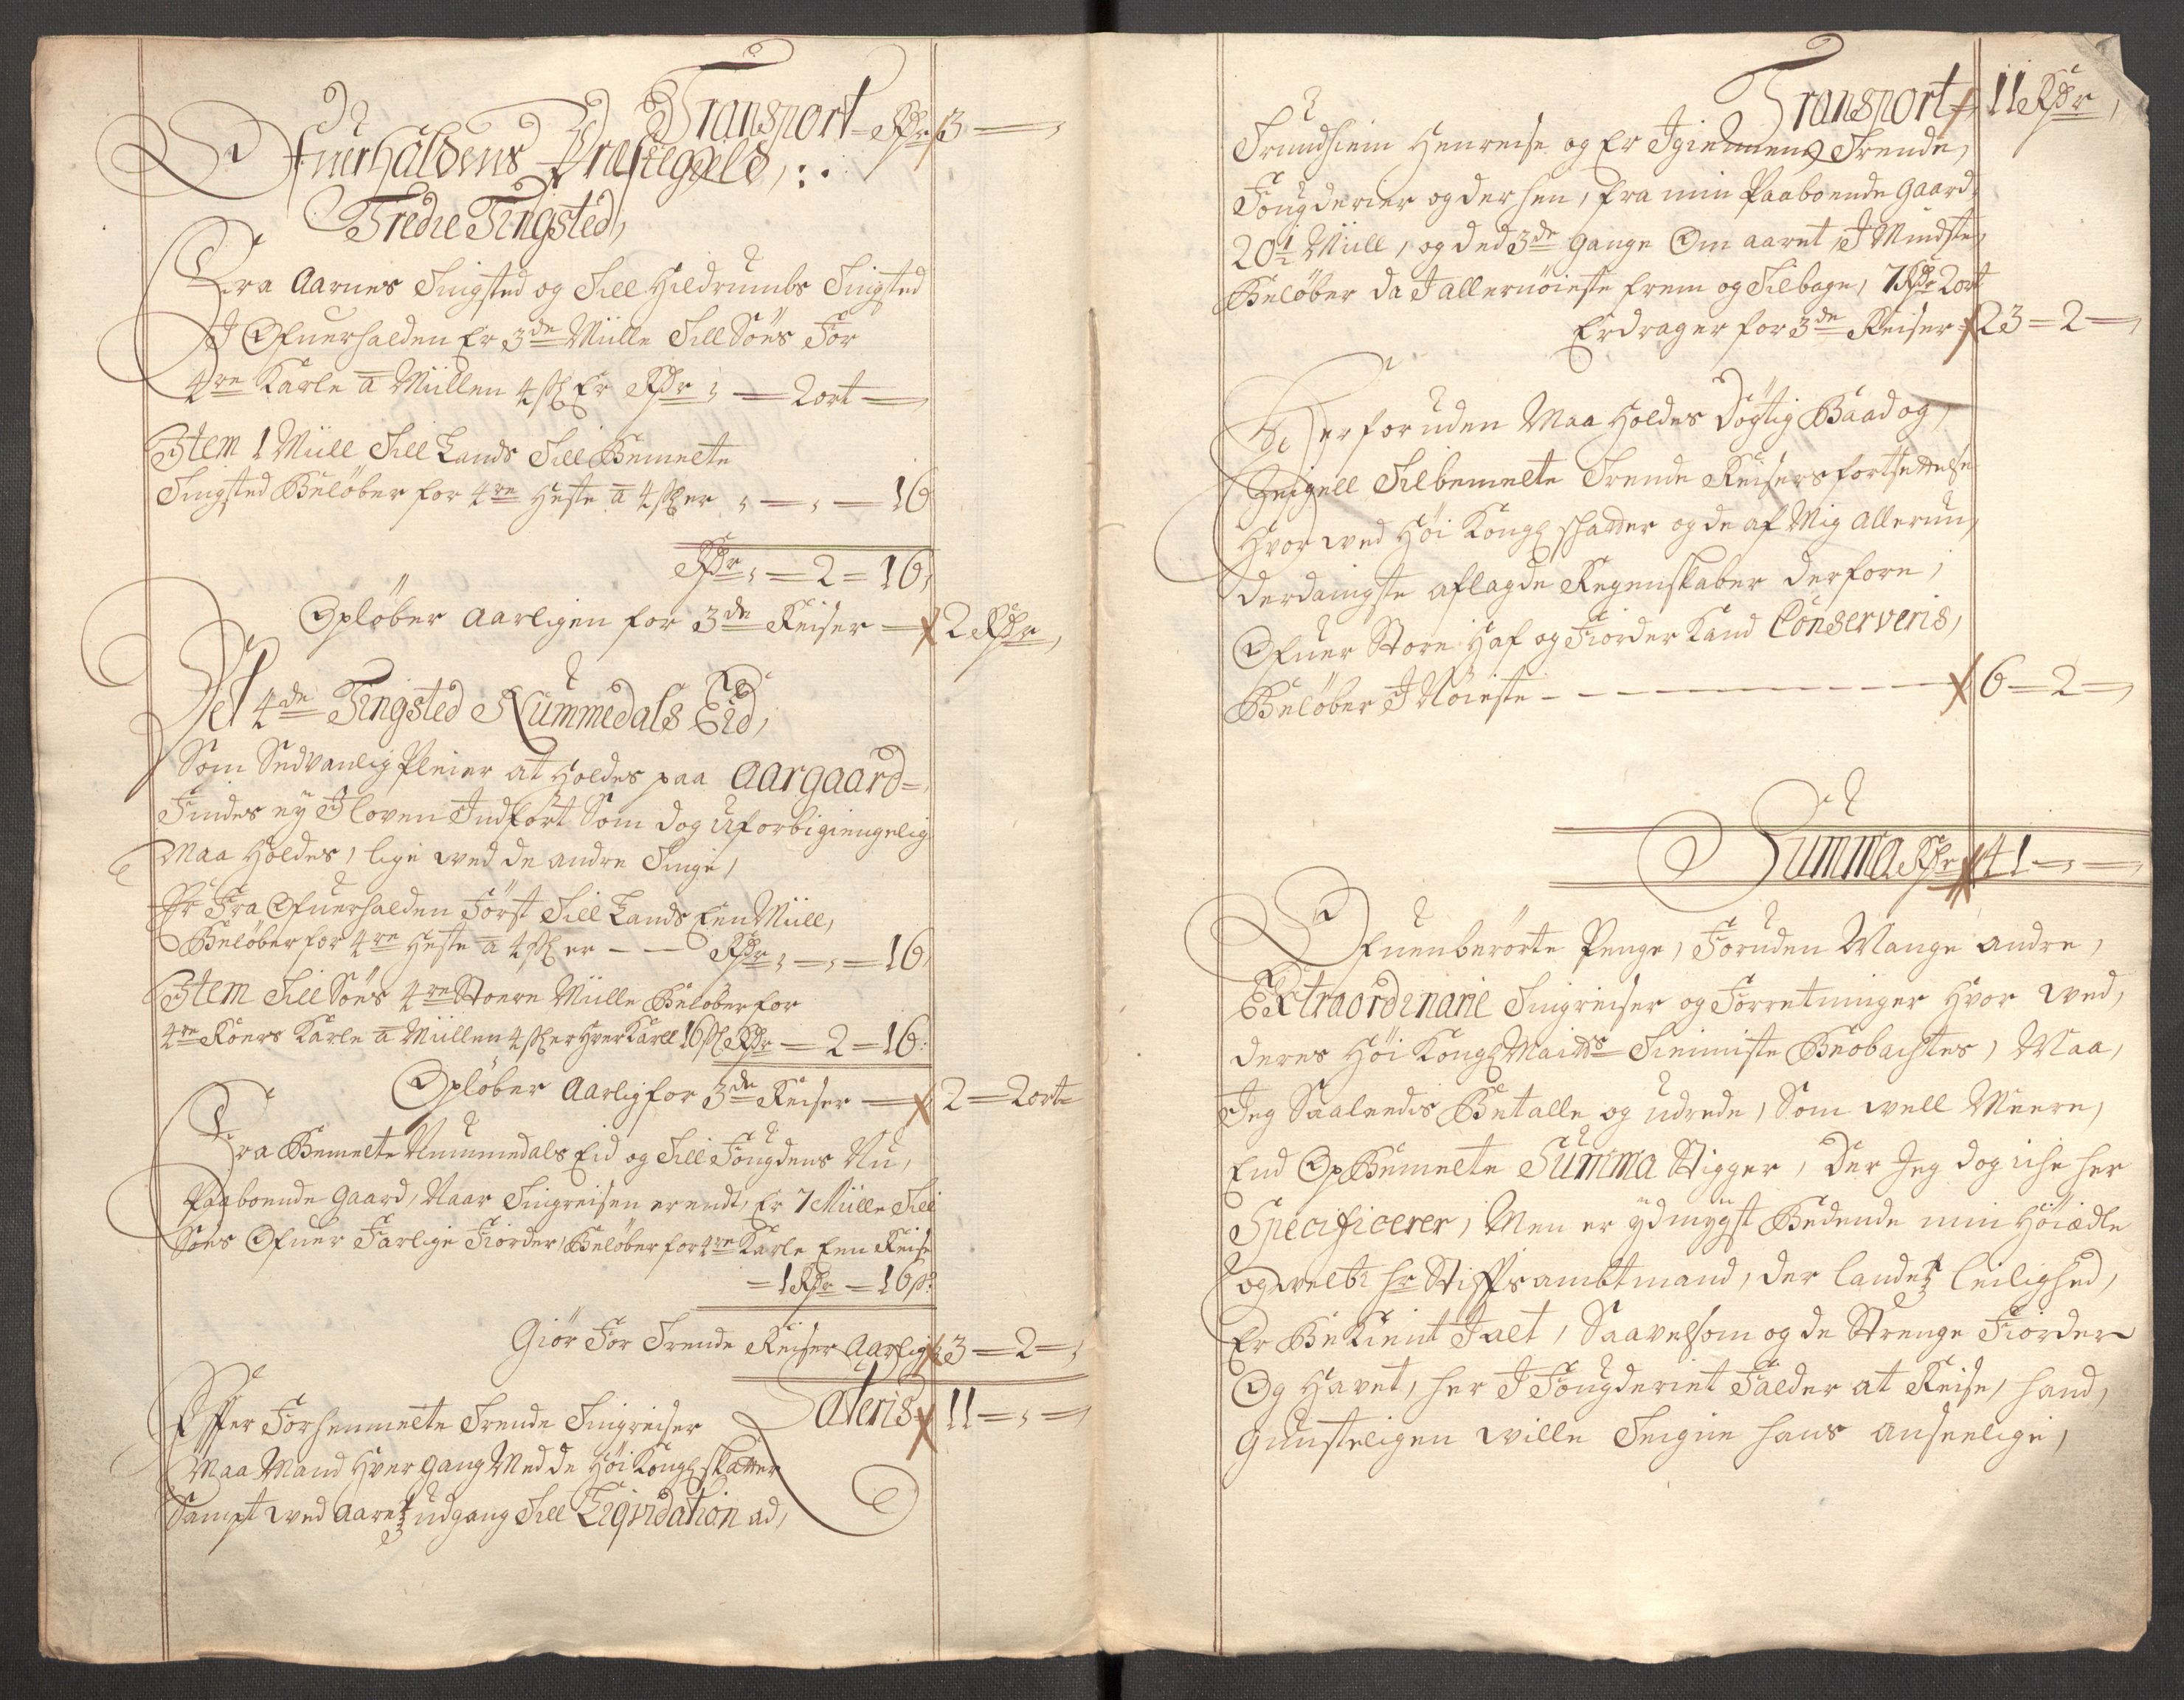 Transport Rdr 3 —
Ofuerhaldens Præstegield,
Tredie Tingsted,
Fra Aarnes Tingsted og Till Hildrumbs Tingsted
I Ofuerhalden Er 3de Miille Till Söes For
4re Karle a Miillen 4 sk Er Rdr , — 2 ort —
Item 1 Miill Till Lands Till Bemelte
Tingsted Beløber for 4re Heste a 4 sk er , — , — 16
Rdr , = 2 = 16,
Opløber Aarligen for 3de Reiser — 2 Rdr,
Det 4de Tingsted Nummedals Eid,
Som Sedvanlig Pleier at Holdes paa Aargaard =
Findes ey I loven Indført Som dog uforbigiengelig
Maa Holdes, lige wed de andre Tinge,
Er Fra Ofuerhalden Först Till Lands Een Miill,
Beløber for 4re Heste a 4 sk er — — Rdr , — , = 16,
Item Till Söes 4re Stoere Miille Beløber for
4re Roers Karle a Miillen 4 sk er Hver Karll 16 sk Rdr — 2 = 16:
Opløber Aarlig for 3de Reiser — 2 — 2 ort
Fra Bemelte Nummedals Eid og Till Fougdens Nu,
Paaboende Gaard, Naar Tingreisen er endt, Er 7 Miille Till
Söes Ofuer Farlige Fiorder, Beløber for 4re Karle Een Reise
= 1 Rdr = 16 s:
Giør For Trende Reiser Aarlig 3 — 2 — ,
Lateris 11 — , —
Effter Forhenmelte Trende Tingreiser
Maa Mand Hver Gang Med de Høi Kongl skatter
Sampt wed Aaretz udgang Till Liqvidation ad,
Transport 11 Rdr,
Trundhiem Henreise og Er Igiennem Trende,
Fougderier og der hen, fra min Paaboende Gaard,
20½ Miill, og ded 3de Gange Om aaret, I Mindste,
Beløber da I allernøieste frem og Tilbage, 7 Rdr 2 ort
Erdrager for 3de Reiser 23 = 2 —
Her foruden Maa Holdes Døgtig Baad og,
Seigell Til bemelte Trende Reisers fortsettelse
Hvor wed Høi Kongl schatter og de af Mig allerun,
derdanigste aflagde Regenskaber derfore,
Ofuer Store Haf og Fiorder Kand Conserveris,
Beløber I Nøieste — — — — — — 6 — 2 —
Summa Rdr 41 — , —
Ofuenberörte Penge, Foruden Mange andre,
Extraordinarie Tingreiser og Forretninger Hvor wed,
deres Høi Kongl Maitts Tienniste Beobachtes, Maa,
Jeg Saaledis Betalle og udrede, Som well Meere,
End Op Bemelte Summa Stigger, Der Jeg dog iche her
Specificerer, Men er ydmygst Bedende min Høiædle
og welb: hr Stiffsambtmand, der landetz leilighed,
Er Bekient I alt, Saavelsom og de Strenge Fiorder
Og Havet, her I Fougderiet Falder at Reise, hand,
Gunsteligen wille Teigne hans anseelige,